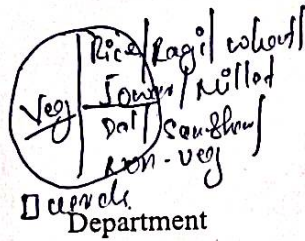 Rice/Ragi/wheat/
Veg
Jowar/Millet
Dal/Sambhar/
non-veg
Department